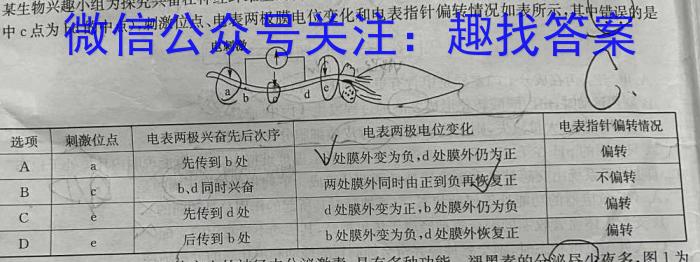 某生物兴趣小组为探究兴奋在神经纤维
中c点为bd的中点),刺激位点、电表两极膜电位变化和电表指针偏转情况如表所示,其中错误的是
微信公众号关注:趣找答案
电刺激
a b c d e
选项 刺激位点 电表两极兴奋先后次序 电表两极电位变化 电表指针偏转情况
A a 先传到b处 b处膜外变为负,d处膜外仍为正 偏转
B c b,d同时兴奋 两处膜外同时由正到负再恢复正 不偏转
C e 先传到d处 d处膜外变为正,b处膜外仍为负 偏转
D e 后传到b处 b处膜外变为负,d处膜外恢复正 偏转
具有多种功能 褪黑素的分泌昼少夜多,图1为